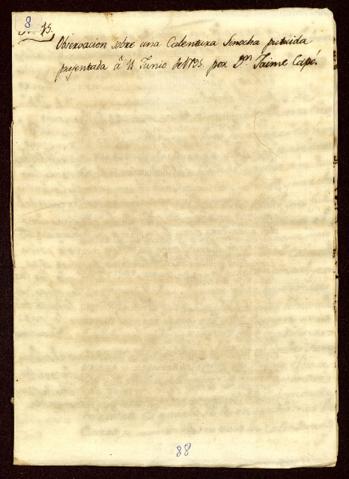 8
Observacion sobre una Calentura Sinocha putrida
presentada â 11 Junio de 1795. por Dⁿ. Jaime Capé.
88